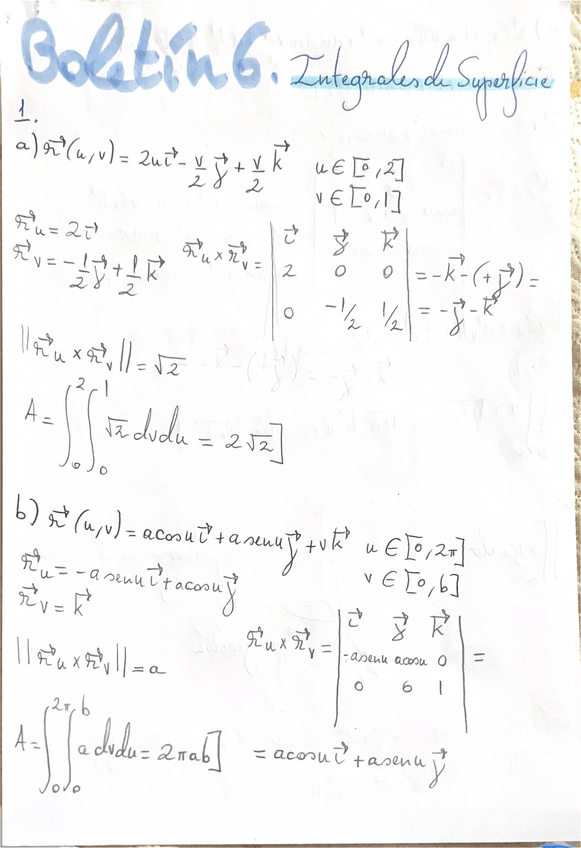 Boletín 6. Integrales de Superficie
1.
a) r⃗(u,v) = 2u i⃗ - v/2 j⃗ + v/2 k⃗   u ∈ [0,2]
v ∈ [0,1]
r⃗u = 2i⃗
r⃗v = -1/2 j⃗ + 1/2 k⃗   r⃗u × r⃗v = | i⃗ j⃗ k⃗ |
| 2 0 0 | = -k⃗ - (+j⃗) =
| 0 -1/2 1/2 | = -j⃗ - k⃗
||r⃗u × r⃗v|| = √2
A = ∫₀² ∫₀¹ √2 dv du = 2√2]
b) r⃗(u,v) = a cos u i⃗ + a sen u j⃗ + v k⃗   u ∈ [0,2π]
v ∈ [0,b]
r⃗u = -a sen u i⃗ + a cos u j⃗
r⃗v = k⃗
r⃗u × r⃗v = | i⃗ j⃗ k⃗ |
| -a sen u a cos u 0 | =
| 0 6 1 |
||r⃗u × r⃗v|| = a
A = ∫₀^2π ∫₀^b a dv du = 2πab]   = a cos u i⃗ + a sen u j⃗